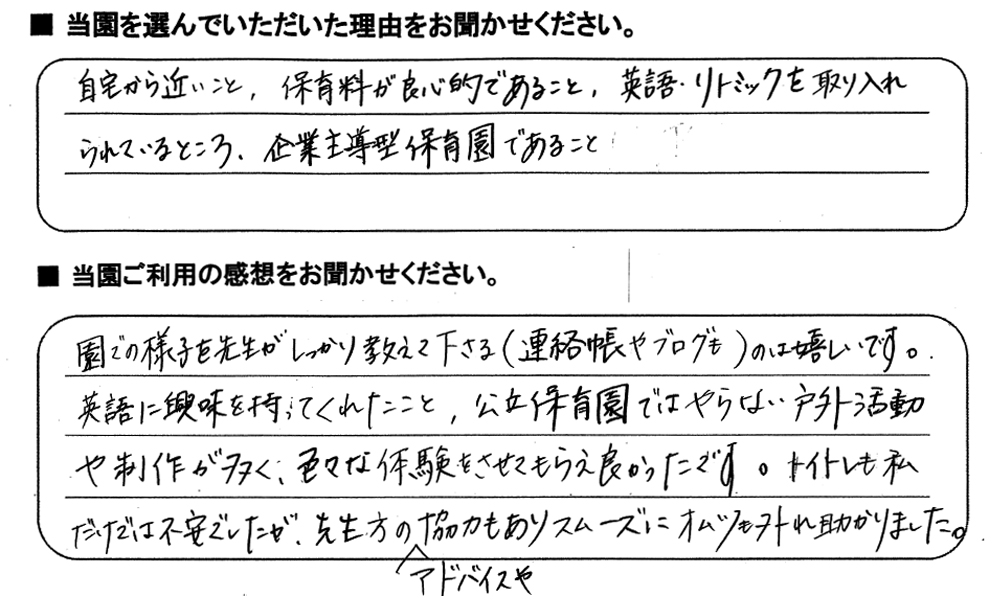 ■ 当園を選んでいただいた理由をお聞かせください。
自宅から近いこと, 保育料が良心的であること, 英語・リトミックを取り入れ
られているところ、企業主導型保育園であること
■ 当園ご利用の感想をお聞かせください。
園での様子を先生がしっかり教えて下さる(連絡帳やブログも)のは嬉しいです。
英語に興味を持ってくれたこと, 公立保育園ではやらない戸外活動
や制作が多く、色々な体験をさせてもらえ良かったです。トイトレも私
だけでは不安でしたが、先生方の協力もありスムーズにオムツも外れ助かりました。
アドバイスや